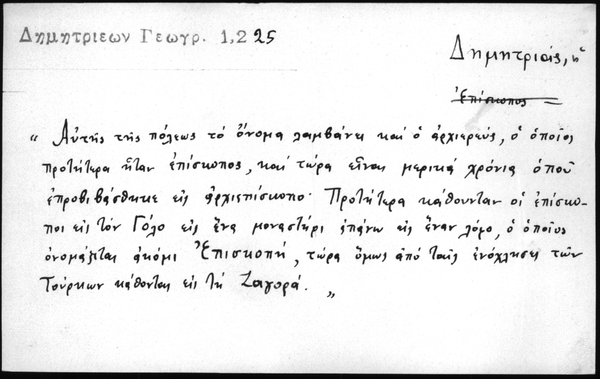 Δημητριεων Γεωγρ. 1,225
Δημητριάς, ἡ
Ἐπίσκοπος
" Αὐτῆς τῆς πόλεως τὸ ὄνομα λαμβάνει καὶ ὁ ἀρχιερεύς, ὁ ὁποῖος
προτήτερα ἦταν ἐπίσκοπος, καὶ τώρα εἶναι μερικὰ χρόνια ὁποῦ
ἐπροβιβάσθηκε εἰς ἀρχιεπίσκοπο. Προτήτερα κάθουνταν οἱ ἐπίσκο-
ποι εἰς τὸν Γόλο εἰς ἕνα μοναστήρι ἐπάνω εἰς ἕναν λόφο, ὁ ὁποῖος
ὀνομάζεται ἀκόμι Ἐπισκοπή, τώρα ὅμως ἀπὸ ταῖς ἐνόχλησες τῶν
Τούρκων κάθονται εἰς τὴ Ζαγορά. "